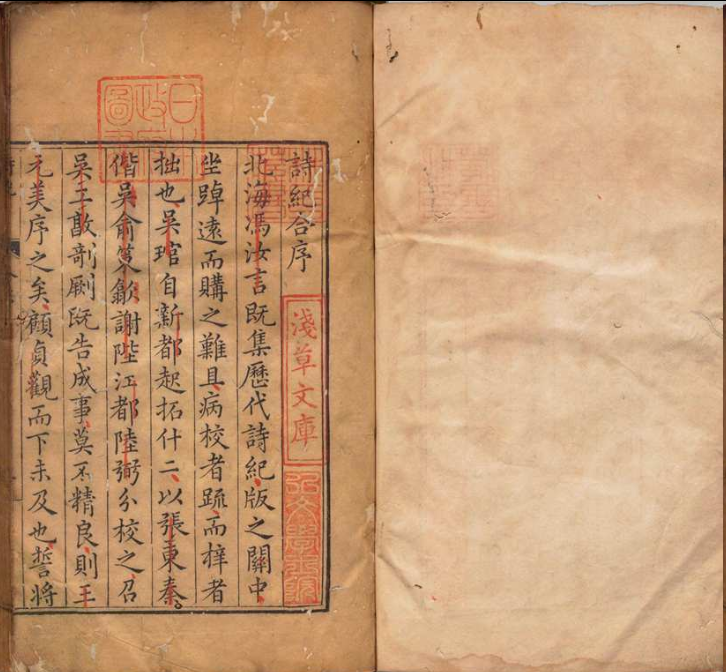 詩紀合序
北海馮汝言既集歷代詩紀版之關中
坐踔遠而購之難且病校者踈而梓者
拙也吳琯自新都起拓什二以張東秦
偕吳俞策歙謝陛江都陸弼分校之召
吳工敢剞劂既告成事莫不精良則王
元美序之矣顧貞觀而下未及也誓將
淺草文庫
日本政府圖書